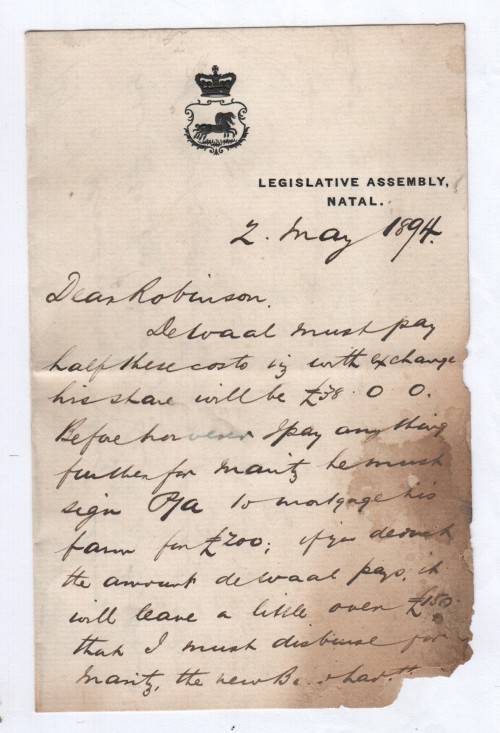 LEGISLATIVE ASSEMBLY,
NATAL.
2. May 1894.
Dear Robinson.
De Waal must pay
half these costs viz with exchange
his share will be £38 0 0.
Before however I pay anything
further for Maritz he must
sign P/a to mortgage his
farm for £200; if you deduct
the amount de Waal pays, it
will leave a little over £150
that I must disburse for
Maritz, the new